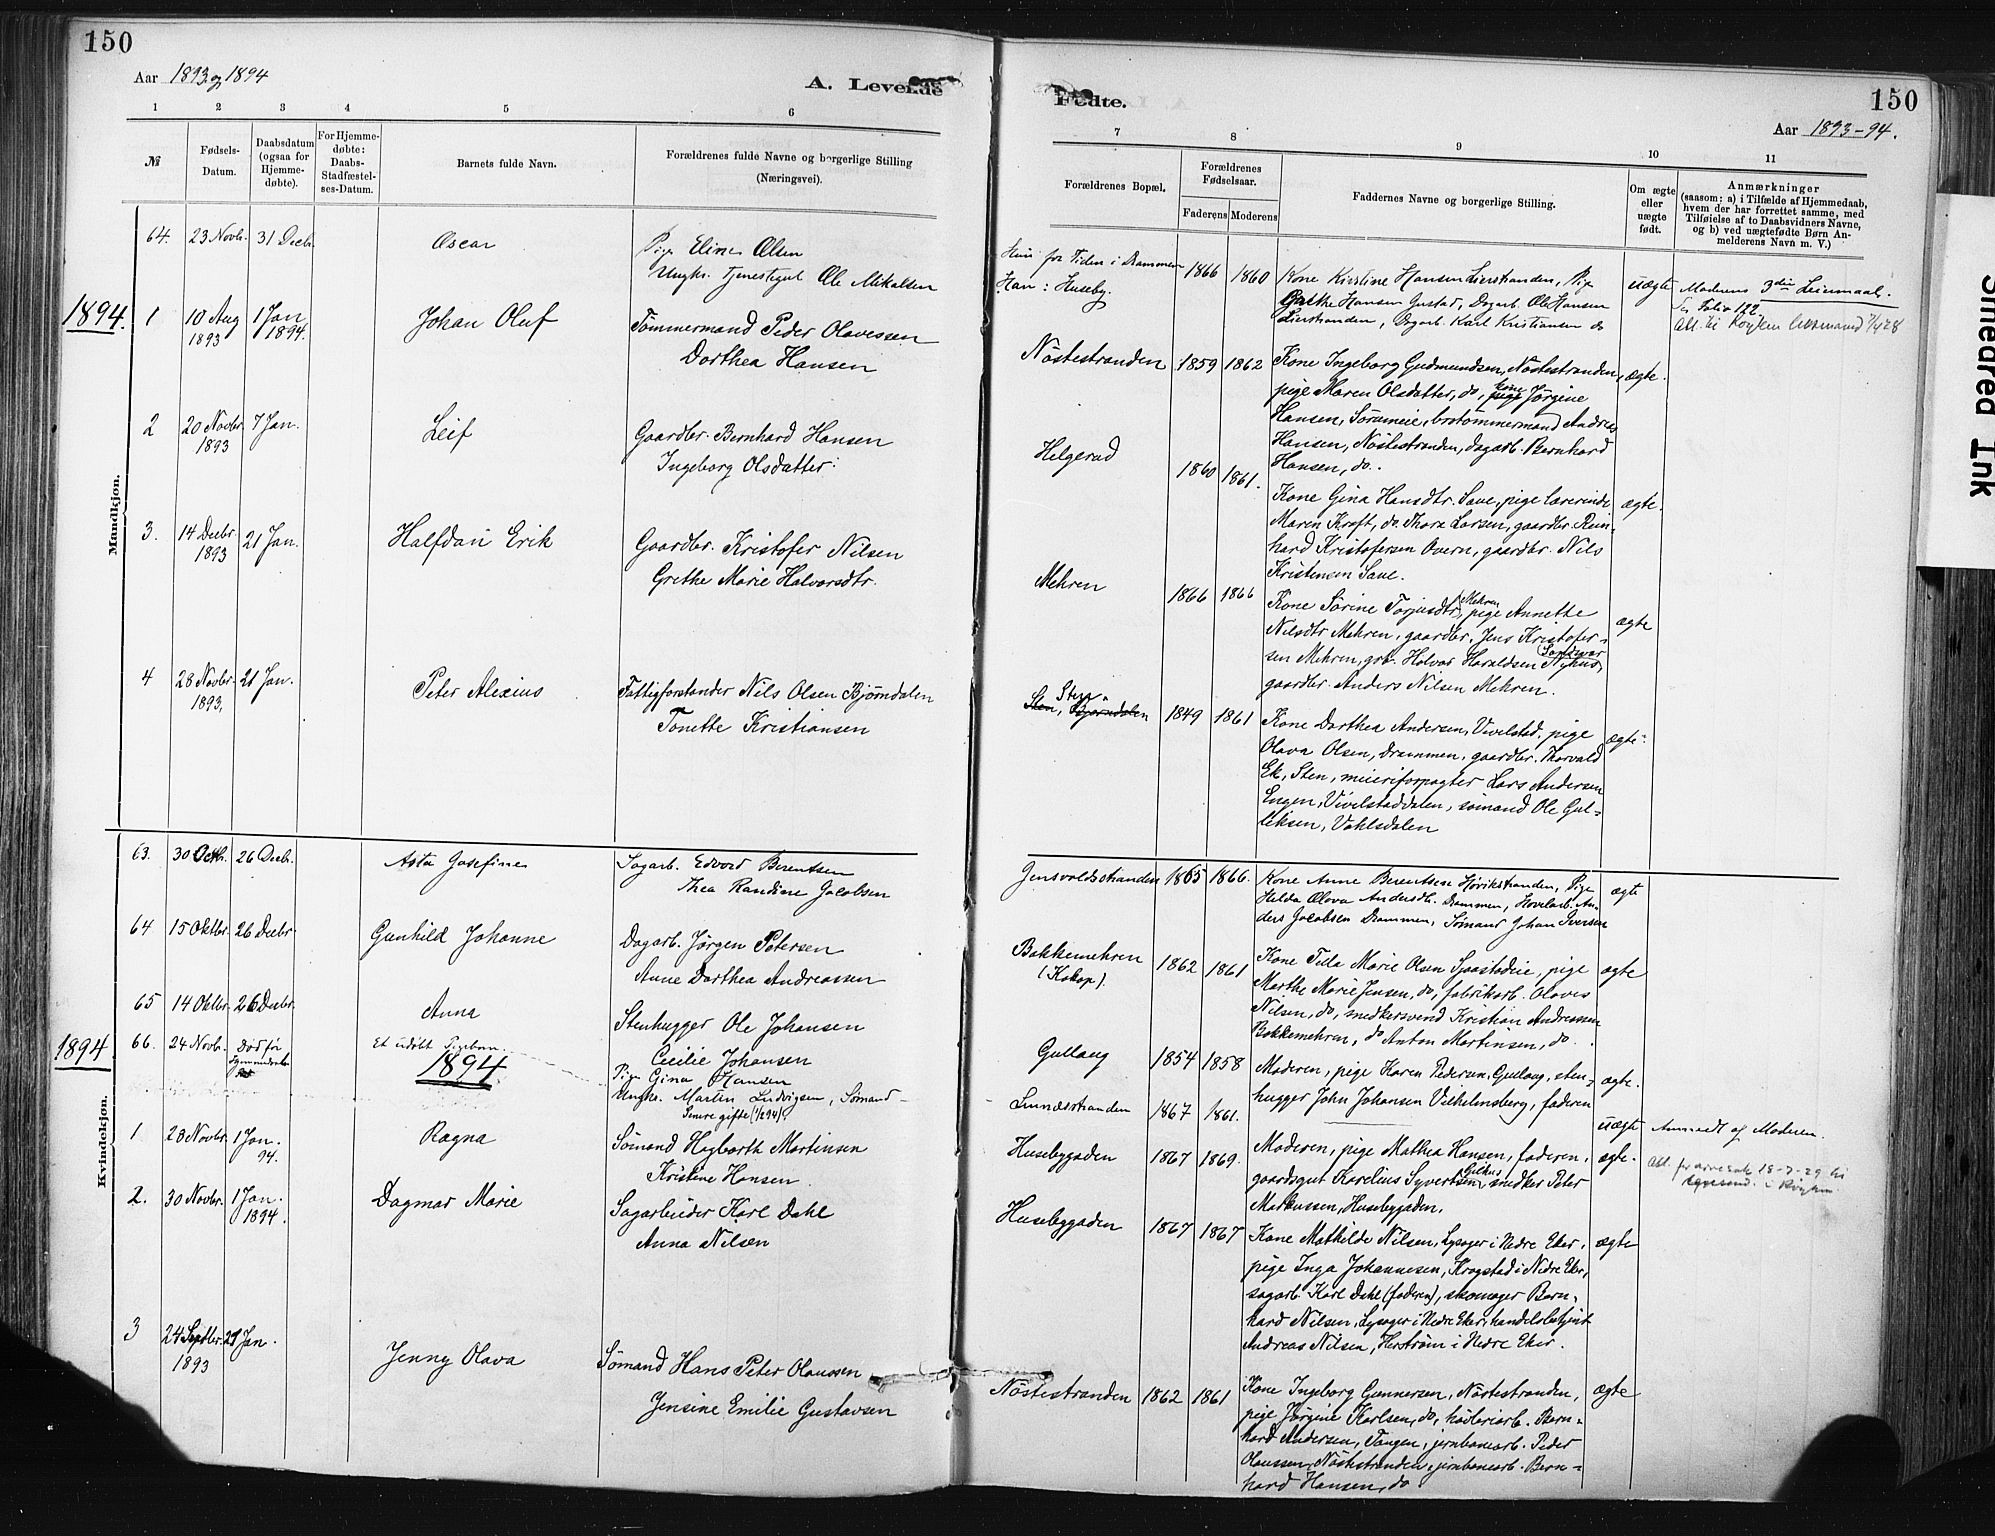 150
Aar 1893 og 1894
A. Levende
1 2 3 4 5 6
№
Fødsels-
Datum.
Daabsdatum
(ogsaa for
Hjemme-
døbte).
For Hjemme-
døbte:
Daabs-
Stadfæstel-
ses-Datum.
Barnets fulde Navn.
Forældrenes fulde Navne og borgerlige Stilling
(Næringsvei).
Mandkjøn.
64. 23 Novb. 31 Decb. Oscar
Pige Eline Olsen
Ungk. Tjenestegut Ole Mikalsen
1894. 1 10 Aug 1893 1 Jan 1894. Johan Oluf
Tømmermand Peder Olavessen
Dorthea Hansen
2 20 Novbr. 1893 7 Jan. Leif
Gaardbr. Bernhard Hansen
Ingeborg Olsdatter.
3. 14 Decbr. 1893 21 Jan. Halfdan Erik
Gaardbr. Kristofer Nilsen
Grethe Marie Halvorsdtr.
4 28 Novbr. 1893, 21 Jan. Peter Alexius
Fattigforstander Nils Olsen Bjørndalen
Tonette Kristiansen
Kvindekjøn.
63. 30 Octb. 26 Decb. Asta Josefine
Sagarb. Edvard Berentsen
Thea Randine Jacobsen
64 15 Oktbr. 26 Decbr. Gunhild Johanne
Dagarb. Jørgen Petersen
Anne Dorthea Andreassen
65 14 Oktbr. 26 Decbr. Anna
Stenhugger Ole Johansen
Cecilie Johansen
66. 24 Novb. Død før
Et udøbt Pigebarn.
Pige Gina Hansen
Ungk. Martin Ludvigsen, Sømand
Senere gifte (1/2 94)
1894 1894.
1 23 Novbr. 1 Jan. 94. Ragna
Sømand Hagbarth Martinsen
Kristine Hansen.
2. 30 Novbr. 1 Jan. 1894. Dagmar Marie
Sagarbeider Karl Dahl
Anna Nilsen
3 24 Septbr. 1893 21 Jan. Jenny Olava
Sømand Hans Peter Olaussen
Jensine Emilie Gustavsen
Fødte.
150
Aar 1893-94.
7 8 9 10 11
Forældrenes Bopæl.
Forældrenes
Fødselsaar.
Faderens Moderens
Faddernes Navne og borgerlige Stilling.
Om ægte
eller
uægte
født.
Anmærkninger
(saasom: a) i Tilfælde af Hjemmedaab,
hvem der har forrettet samme, med
Tilføielse af to Daabsvidners Navne,
og b) ved uægtefødte Børn An-
melderens Navn m. V.)
Hun for Tiden i Drammen
Han: Huseby.
1866 1860
Kone Kirstine Hansen Lierstranden, Pige
Hansen Gustad, Dagarb. Ole Hansen
Lierstranden, Dagarb. Karl Kristiansen do
uægte
Moderens 3die Leiermaal.
Se Folio 122.
Nøstestranden 1859 1862
Kone Ingeborg Gudmundsen, Nøstestranden,
pige Maren Olsdatter, do, kone Jørgine
Hansen, Sørumeie, brotømmermand Andreas
Hansen, Nøstestranden, dagarb. Bernhard
Hansen, do.
ægte.
Helgerud 1860 1861.
Kone Gina Hansdtr. Saue, pige Lærerinde
Maren Kroft, do Thora Larsen, gaardbr. Rein-
hard Kristofersen Overn, gaardbr. Nils
Kristensen Saue.
ægte.
Mehren 1866 1866
Kone Sørine Torjusdtr Mehren, pige Annette
Nilsdtr Mehren, gaardbr. Jens Kristofer-
sen Mehren, grb. Halvor Haraldsen Nyhus,
gaardbr. Anders Nilsen Mehren.
ægte
Sten, Bjørndalen Sten. 1849 1861
Kone Dorthea Andersen, Vivelstad, pige
Olava Olsen, Drammen, gaardbr. Thorvald
Ek, Sten, meieriforpagter Lars Andersen
Engen, Vivelstaddalen, sømand Ole Gul-
liksen, Vahlsdalen
ægte.
Jensvoldstranden 1865 1866.
Kone Anne Berentsen Høvikstranden, Pige
Helda Olova Andersdtr. Drammen, Høvlarb. An-
ders Jacobsen Drammen, Sømand Johan Iversen
ægte
Bakkemehren 1862 1861
Kone Tilla Marie Olsen Sjaastadeie, pige
Marthe Marie Jensen, do, fabrikarb. Olaves
Nilsen, do, smedkersvend Kristian Andreassen
Bakkemehren, do Anton Martinsen, do.
ægte
Gullaug 1854 1858
Moderen, pige Karen Pedersen, Gullaug, sten-
hugger John Johansen Vilhelmsberg, faderen
ægte.
Linnesstranden 1867 1861.
uægte Anmeldt af Moderen.
Husebygaden 1867 1869.
Moderen, pige Mathea Hansen, faderen,
gaardsgut Karelius Syvertsen Gilhus, smedker Peter
Markussen, Husebygaden.
ægte.
Husebygaden 1867 1867
Kone Mathilde Nilsen, Lysager i Nedre Eker,
pige Inga Johannesen, Krogstad i Nedre Eker,
sagarb Karl Dahl (faderen), skomager Bern-
hard Nilsen, Lysager i Nedre Eker, handelsbetjent
Andreas Nilsen, Herstrøm i Nedre Eker.
ægte
Nøstestranden 1862 1861
Kone Ingeborg Gunnersen, Nøstestranden,
pige Jørgine Karlsen, do, høvleriarb. Bern-
hard Andersen, Tangen, jernbanearb. Peder
Olaussen, Nøstestranden, jernbanearb. Bern-
hard Hansen, do
ægte
Smeared Ink